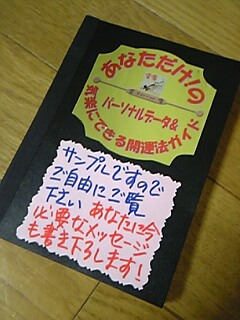 あなただけ!の
パーソナルデータ&
気楽にできる開運法ガイド
サンプルですので
ご自由にご覧
下さい あなたに今
必要なメッセージ
も書き下ろします!